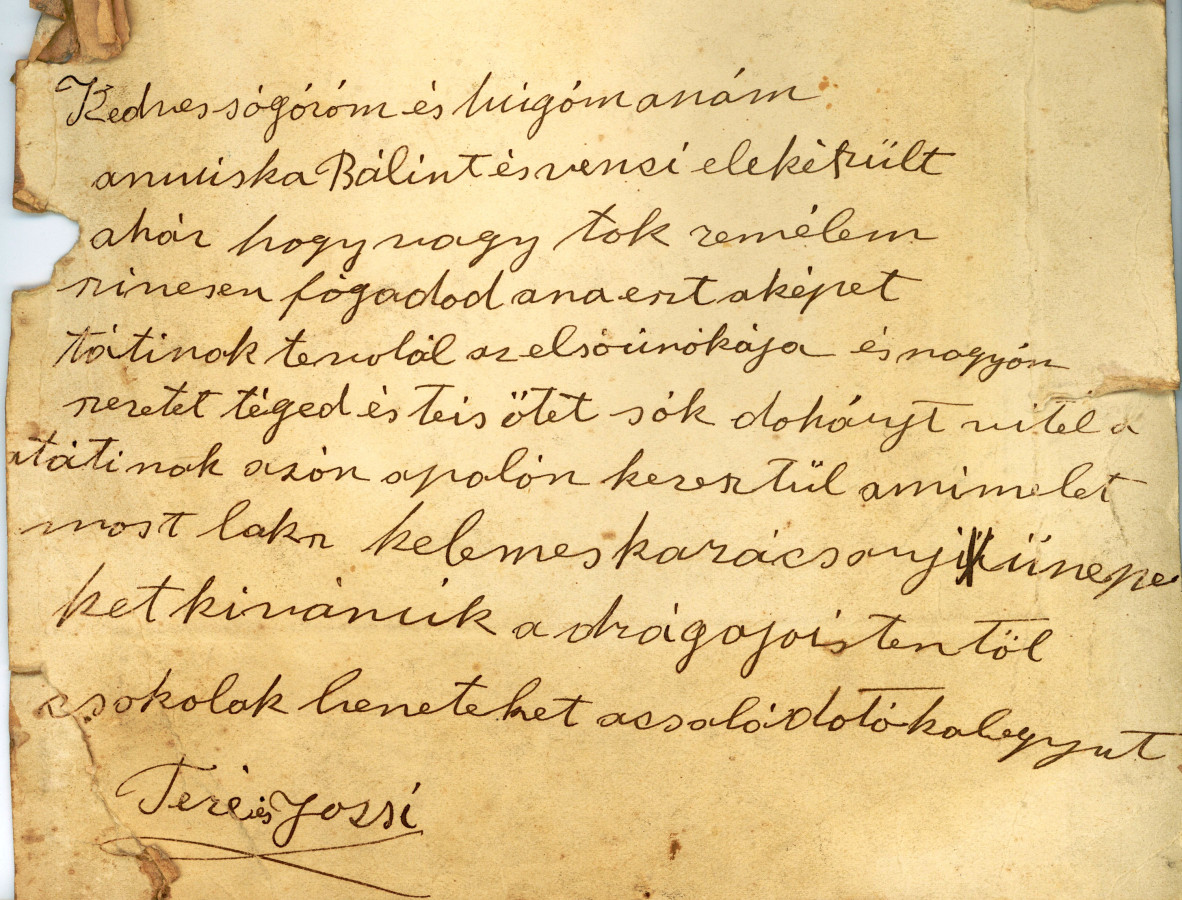 Kedves sógóróm és húgóm anám
annuiska Bálint és venzi elekérült
ahár hogy vagy tok remélem
rinesen fógadod ana ezt aképet
tátinak tevolál az elsóúnókája és nagyón
rezetet téged és teis ötet sók dohányt vitel a
atátinak azón apalón kerertül amimelet
most lakr kelemes karácsonyi ünepe
ket kivánúk a drágajóistentöl
csokolak beneteket acsaládotókalegyut
Teré és Jossi